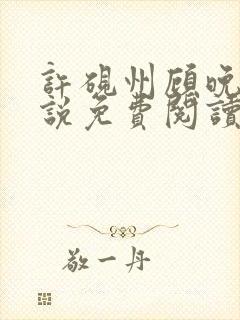 許硯州顧晚
說免費閱讀
敬一丹